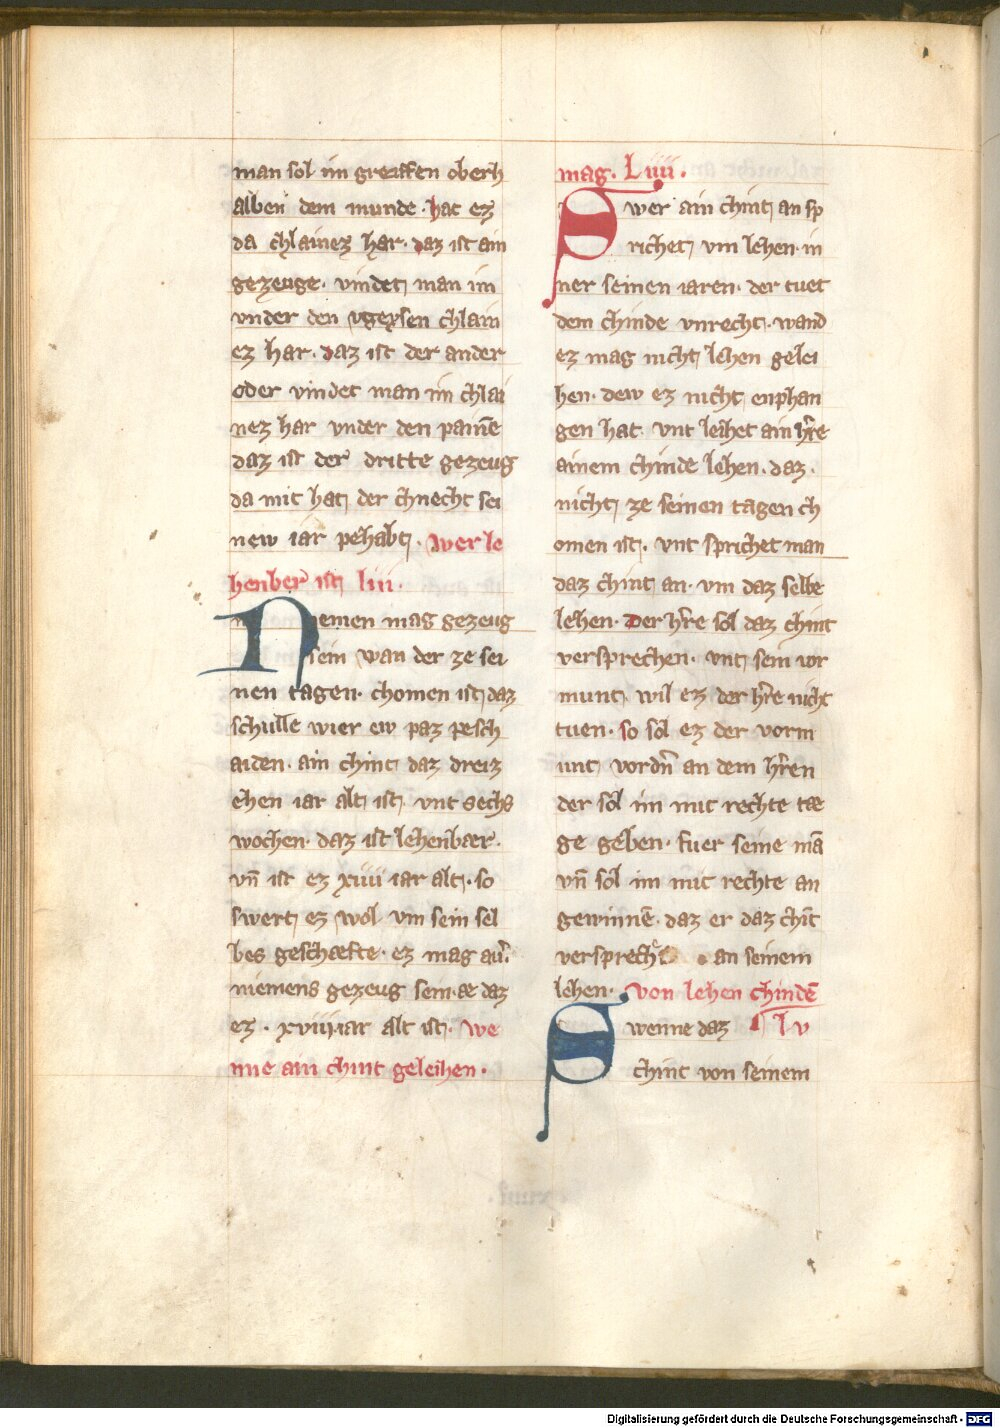 man sol im greiffen oberh
alben dem munde · hat ez
da chlainez har · daz ist ain
gezeuge · vindet man im
vnder den vgeysen chlain
ez har · daz ist der ander
oder vindet man im chlai
nez har vnder den painē
daz ist der dritte gezeug
da mit hat der chnecht sei
new iar pehabt · wer le
henber ist liii ·
Niemen mag gezeug
sein wan der ze sei
nen tagen · chomen ist daz
schulle wier ew paz pesch
aiden · ain chint daz dreiz
ehen iar alt ist vnt sechs
wochen · daz ist lehenbær ·
vn̄ ist ez xiiii iar alt · so
swert ez wol vm sein sel
bes geschæfte · ez mag au᷑
niemens gezeug sein · æ daz
ez · xviii · iar alt ist · we
nne ain chint geleihen ·
mag · Liiii ·
Swer ain chint an sp
richet vm lehen · in
ner seinen iaren · der tuet
dem chinde vnrecht · wand
ez mag nicht lehen gelei
hen · dew ez nicht enphan
gen hat · vnt leihet ain hr̄e
ainem chinde lehen · daz ·
nicht ze seinen tagen ch
omen ist · vnt sprichet man
daz chint an · vm daz selbe
lehen · der hr̄e sol daz chint
versprechen · vnt sein vor
munt · wil ez der hr̄e nicht
tuen · so sol ez der vorm
unt vordn̄ an dem hr̄en
der sol im mit rechte tæ
ge geben · fuer seine mā
vn̄ sol im mit rechte an
gewinnē · daz er daz chīt
versprech · an seinem
lehen · von lehen chindē
Swenne daz lv
chint von seinem
Digitalisierung gefördert durch die Deutsche Forschungsgemeinschaft - DFG